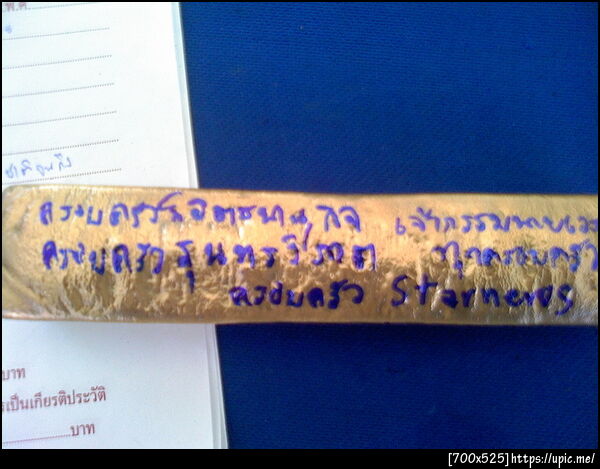 พ.ศ.
ครอบครัวจิตธนานุกิจ เจ้ากรรมนายเวร
ครอบครัวสุนทรวิรอด ทุกครอบครัว
ครอบครัว Starneros
บาท
รเป็นเกียรติประวัติ
บาท
[700x525]https://upic.me/